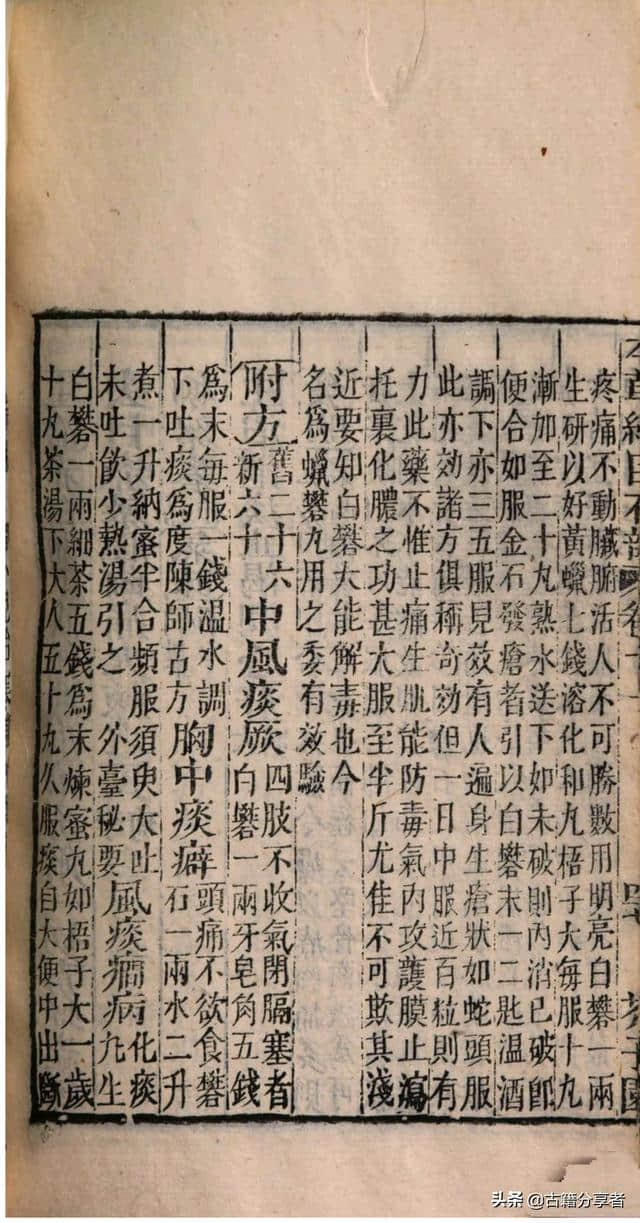 本草綱目石部 卷十一 芥子園
疼痛不動臟腑活人不可勝數用明亮白礬一兩
生研以好黃蠟七錢溶化和丸梧子大每服十丸
漸加至二十丸熟水送下如未破則內消已破卽
便合如服金石發瘡者引以白礬末一二匙溫酒
調下亦三五服見效有人遍身生瘡狀如蛇頭服
此亦効諸方俱稱奇効但一日中服近百粒則有
力此藥不惟止痛生肌能防毒氣內攻護膜止瀉
托裏化膿之功甚大服至半斤尤佳不可欺其淺
近要知白礬大能解毒也今
名爲蠟礬丸用之委有效驗
附方
舊二十六
新六十
中風痰厥
四肢不收氣閉膈塞者
白礬一兩牙皂角五錢
爲末每服一錢溫水調
下吐痰爲度陳師古方
胸中痰癖
頭痛不欲食礬
石一兩水二升
煮一升納蜜半合頻服須臾大吐
未吐飲少熱湯引之 外臺秘要
風痰癇病
化痰
丸生
白礬一兩細茶五錢爲末煉蜜丸如梧子大一歲
十丸茶湯下大人五十丸久服痰自大便中出斷
头条 @古籍分享者